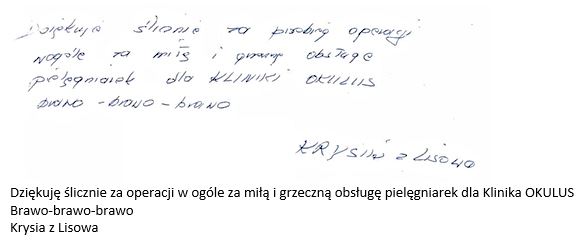 Dziękuję ślicznie za przebieg operacji
wogóle za miłą i grzeczną obsługę
pielęgniarek dla KLINIKI OKULUS
brawo - brawo - brawo
KRYSIA z Lisowa
Dziękuję ślicznie za operacji w ogóle za miłą i grzeczną obsługę pielęgniarek dla Klinika OKULUS
Brawo-brawo-brawo
Krysia z Lisowa